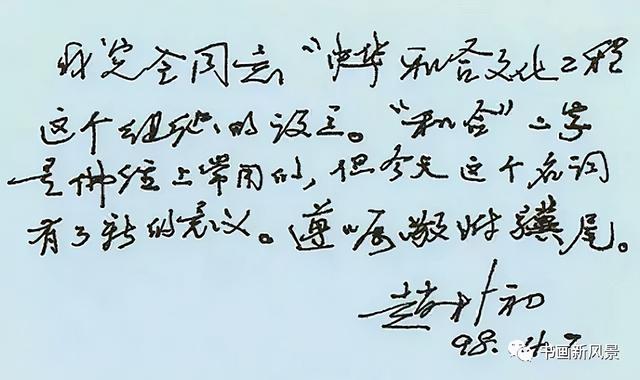 我完全同意“中华和合文化工程
这个组织的设立。“和合”二字
是佛经上常用的，但今天这个名词
有了新的意义。遵嘱敬附骥尾。
赵朴初
98.4.7
书画新风景